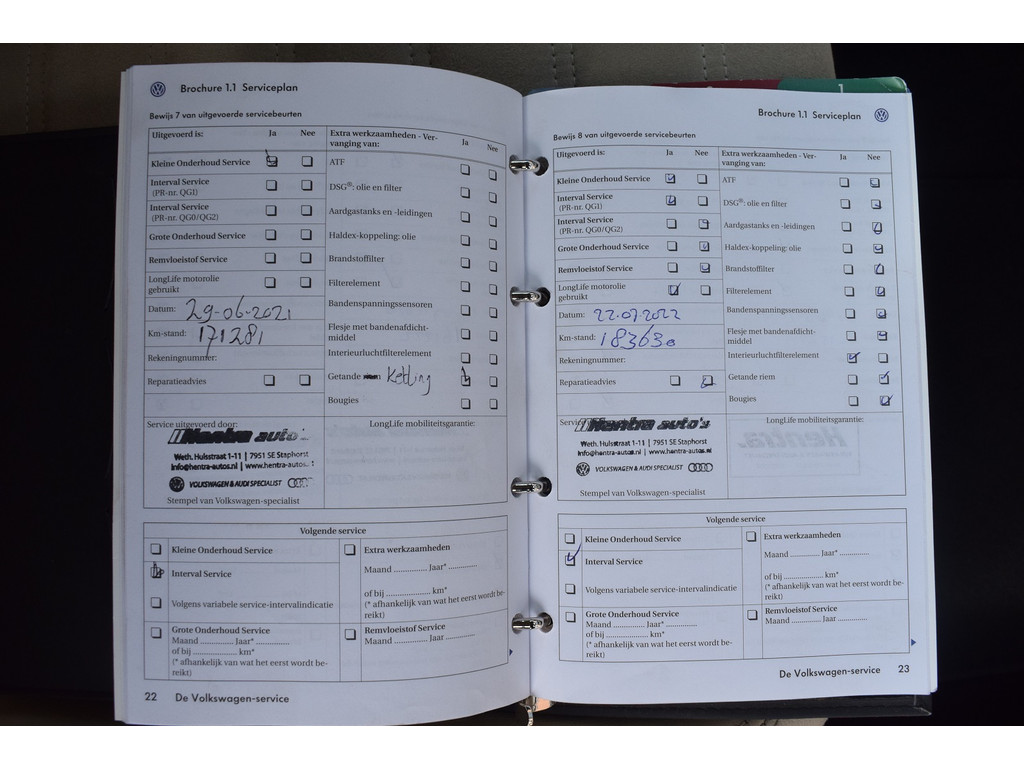 Brochure 1.1 Serviceplan
Bewijs 7 van uitgevoerde servicebeurten
Uitgevoerd is: Ja Nee
Kleine Onderhoud Service
Interval Service
(PR-nr. QG1)
Interval Service
(PR-nr. QG0/QG2)
Grote Onderhoud Service
Remvloeistof Service
LongLife motorolie
gebruikt
Datum: 29-06-2021
Km-stand: 171281
Rekeningnummer:
Reparatieadvies
Extra werkzaamheden - Ver-
vanging van: Ja Nee
ATF
DSG®: olie en filter
Aardgastanks en -leidingen
Haldex-koppeling: olie
Brandstoffilter
Filterelement
Bandenspanningssensoren
Flesje met bandenafdicht-
middel
Interieurluchtfilterelement
Getande Ketting
Bougies
Service uitgevoerd door:
Hentra auto's
Weth. Hulsstraat 1-11 | 7951 SE Staphorst
info@hentra-autos.nl | www.hentra-autos.
VOLKSWAGEN & AUDI SPECIALIST
Stempel van Volkswagen-specialist
LongLife mobiliteitsgarantie:
Volgende service
Kleine Onderhoud Service
Interval Service
Volgens variabele service-intervalindicatie
Grote Onderhoud Service
Maand ............... Jaar* ...............
of bij .................... km*
(* afhankelijk van wat het eerst wordt be-
reikt)
Extra werkzaamheden
Maand ............... Jaar* ...............
of bij .................... km*
(* afhankelijk van wat het eerst wordt be-
reikt)
Remvloeistof Service
Maand ............... Jaar ...............
22 De Volkswagen-service
1
Brochure 1.1 Serviceplan
Bewijs 8 van uitgevoerde servicebeurten
Uitgevoerd is: Ja Nee
Kleine Onderhoud Service
Interval Service
(PR-nr. QG1)
Interval Service
(PR-nr. QG0/QG2)
Grote Onderhoud Service
Remvloeistof Service
LongLife motorolie
gebruikt
Datum: 22.07.2022
Km-stand: 183630
Rekeningnummer:
Reparatieadvies
Extra werkzaamheden - Ver-
vanging van: Ja Nee
ATF
DSG®: olie en filter
Aardgastanks en -leidingen
Haldex-koppeling: olie
Brandstoffilter
Filterelement
Bandenspanningssensoren
Flesje met bandenafdicht-
middel
Interieurluchtfilterelement
Getande riem
Bougies
Hentra auto's
Weth. Hulsstraat 1-11 | 7951 SE Staphorst
info@hentra-autos.nl | www.hentra-autos.nl
VOLKSWAGEN & AUDI SPECIALIST
Stempel van Volkswagen-specialist
LongLife mobiliteitsgarantie:
Volgende service
Kleine Onderhoud Service
Interval Service
Volgens variabele service-intervalindicatie
Grote Onderhoud Service
Maand ............... Jaar* ...............
of bij .................... km*
(* afhankelijk van wat het eerst wordt be-
reikt)
Extra werkzaamheden
Maand ............... Jaar* ...............
of bij .................... km*
(* afhankelijk van wat het eerst wordt be-
reikt)
Remvloeistof Service
Maand ............... Jaar ...............
De Volkswagen-service 23